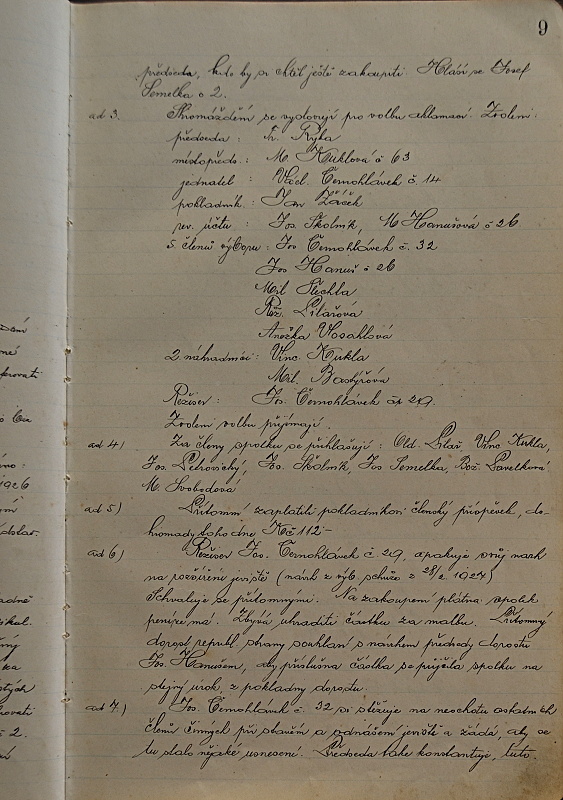 9
předseda, kdo by si chtěl ještě zakoupiti. Hlásí se Josef
Semelka č 2.
ad 3. Shromáždění se vyslovují pro volbu aklamací. Zvoleni:
předseda: Fr. Ryka
místopředs.: M. Kuklová č 63
jednatel: Václ. Černohlávek č. 14
pokladník: Jan Žáček
rev. účtu: Jos. Školník, M Hanušová č 26
5. členů výboru: Jos Černohlávek č. 32
Jos Hanuš č 26
Mil Šlechta
Růž. Lilašová
Anežka Vosahlová
2 náhradníci: Vinc. Kukla
Mil. Bastýřová
Režiser: Jos. Černohlávek čp 29.
Zvolení volbu přijímají.
ad 4) Za členy spolku se přihlašují: Old. Lilaš Vinc Kukla,
Jos. Petrovický, Jos. Školník, Jos Semelka, Bož. Pavelková
M. Svobodová
ad 5) Přítomní zaplatili pokladníkovi členský příspěvek, do-
hromady toho dne Kč 112-
ad 6) Režiser Jos. Černohlávek č 29, opakuje svůj návrh
na rozšíření jeviště (návrh z výb. schůze z 28/2. 1927)
Schvaluje se přítomnými. Na zakoupení plátna spolek
peníze má. Zbývá uhraditi částku za malbu. Přítomný
dorost republ. strany souhlasí s návrhem předsedy dorostu
Jos. Hanušem, aby příslušná částka se půjčila spolku na
stejný úrok, z pokladny dorostu.
ad 7) Jos. Černohlávek č. 32 si stěžuje na neochotu ostatních
členů činných při stavění a odnášení jeviště a žádá, aby se
tu stalo nějaké usnesení. Předseda také konstatuje, tuto